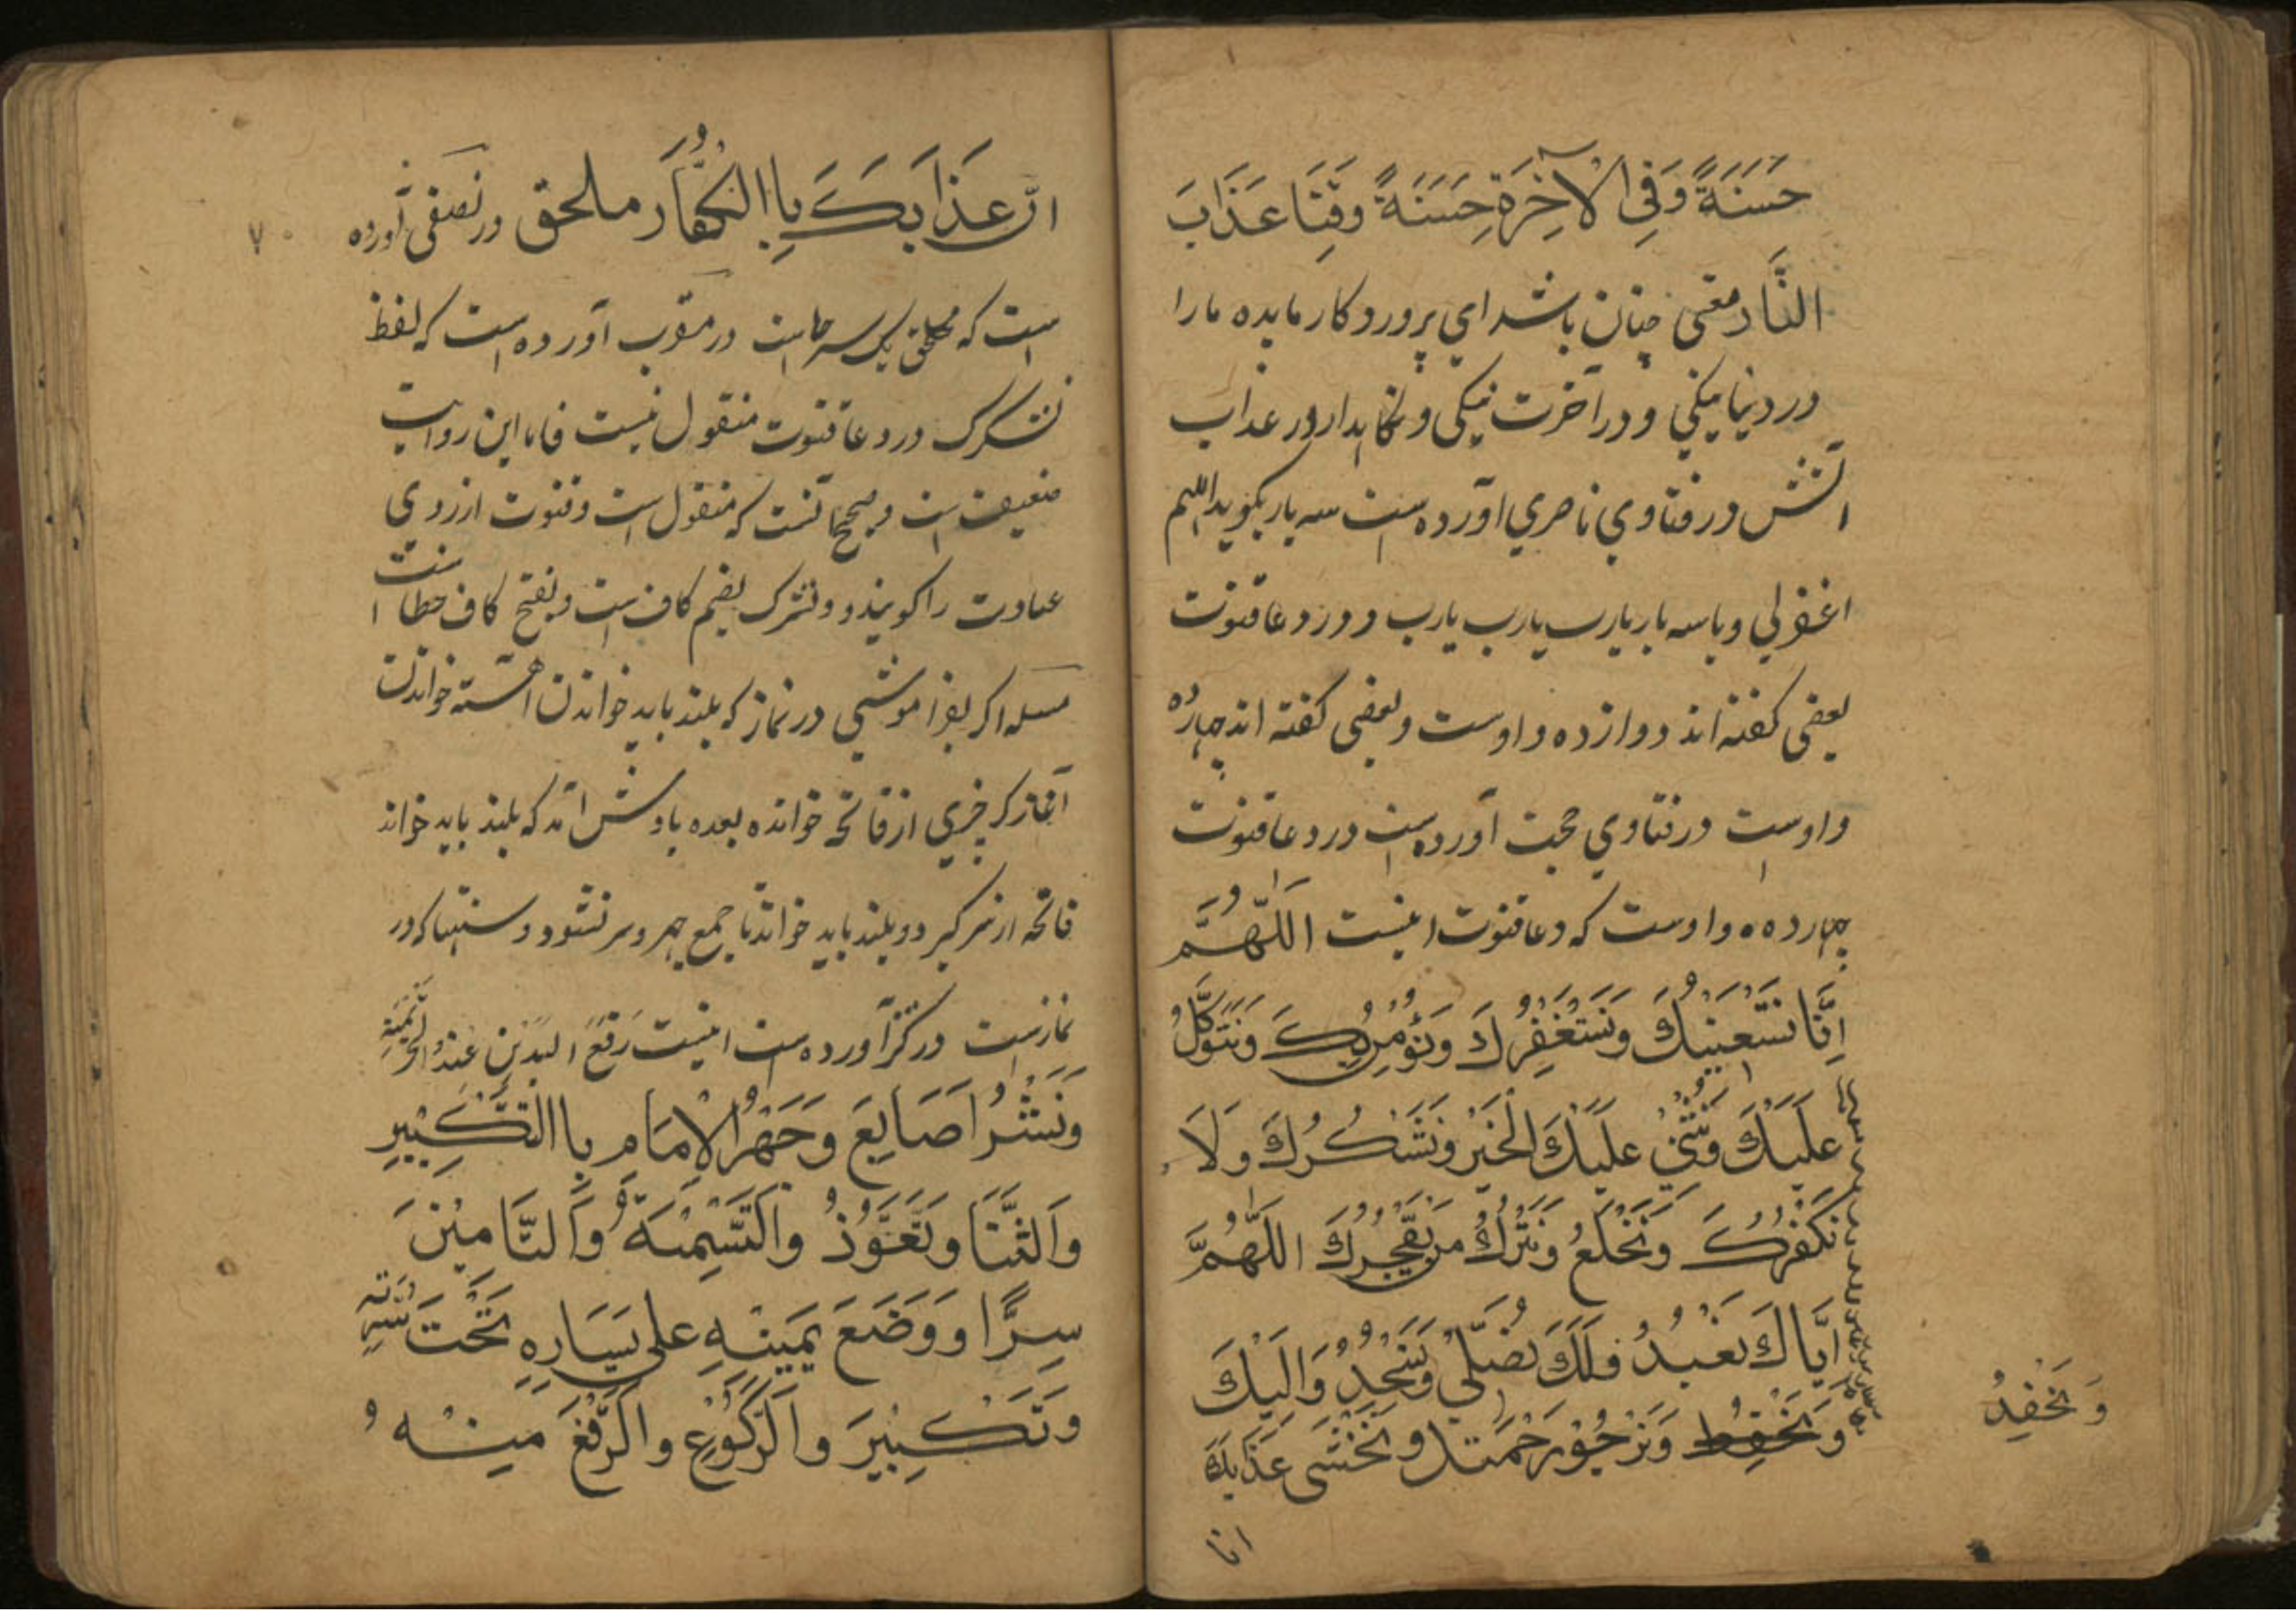 حَسَنَةً وَفِي الْآخِرَةِ حَسَنَةً وَقِنَا عَذَابَ
النَّار معنی چنان باشد ای پروردکار ما بده ما را
در دنیا نیکی و در آخرت نیکی و نکاهدار در عذاب
اتش در فتاوی ناصری اورده است سه بار بکوید اللهم
اغفرلی و یا سه بار یارب یارب یارب و در دعا قنوت
بعضی کفته اند دوازده واوست و بعضی کفته اند چهارده
واوست در فتاوی حجت آورده است در دعا قنوت
چهارده واوست که دعا قنوت اینست اَللّٰهُمَّ
اِنَّا نَسْتَعِيْنُكَ وَنَسْتَغْفِرُكَ وَنُؤْمِنُ بِكَ وَنَتَوَكَّلُ
عَلَيْكَ وَنُثْنِيْ عَلَيْكَ الْخَيْرَ وَنَشْكُرُكَ وَلَا
نَكْفُرُكَ وَنَخْلَعُ وَنَتْرُكُ مَنْ يَفْجُرُكَ اَللّٰهُمَّ
اِيَّاكَ نَعْبُدُ فَلَكَ نُصَلِّيْ وَنَسْجُدُ وَاِلَيْكَ
وَنَرْجُوْ رَحْمَتَكَ وَنَخْشَى عَذَابَكَ
وَنَحْفِدُ
انا
۷۰
انّ عَذَابَكَ بِاالْكُفَّار ملحق در نصفی آورده
است که ملحق بکسر حا است در مقرب آورده است که لفظ
نشکرک در دعا قنوت منقول نیست فاما این روایت
ضعیف است و صحیح آنست که منقول است و قنوت از روی
عبادت را کویند و ونترک بضم کاف است و بفتح کاف خطا است
مسله اکر بفراموشی در نماز که بلند باید خواندن آهسته خواندن
آغاز کر چیزی از فاتحه خوانده بعده یادش آمد که بلند باید خواند
فاتحه از سر کیرد و بلند باید خواند تا جمع جهر و سر نشود و سنتها که در
نماز ست در کنز آورده است اینست رَفْعَ الیَدَیْنِ عِنْدَ التحریمة
وَنَشْرُ اَصَابِعَ وَجَهْرُ الْاِمَامِ بِاالتَّكْبِيْرِ
وَالثَّنَا وَتَعَوُّذُ وَالتَّسْمِيَةُ وَالتَّامِيْنَ
سِرًّا وَوَضَعَ يَمِيْنِهِ عَلى يَسَارِهِ تَحْتَ سُرَّتِهِ
وَتَكْبِيْرَ وَالرُّكُوْعِ وَالرَّفْعَ مِنْهُ